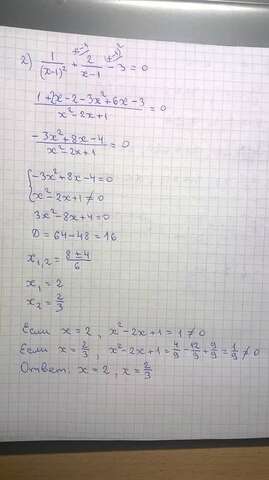 2) 1/(x-1)² + 2/(x-1) - 3 = 0
(1+2x-2-3x²+6x-3)/(x²-2x+1) = 0
(-3x²+8x-4)/(x²-2x+1) = 0
{-3x²+8x-4=0
x²-2x+1≠0
3x²-8x+4=0
D = 64-48 = 16
x₁,₂ = (8±4)/6
x₁ = 2
x₂ = 2/3
Если x = 2, x²-2x+1 = 1 ≠ 0
Если x = 2/3, x²-2x+1 = 4/9 - 12/9 + 9/9 = 1/9 ≠ 0
Ответ: x = 2, x = 2/3